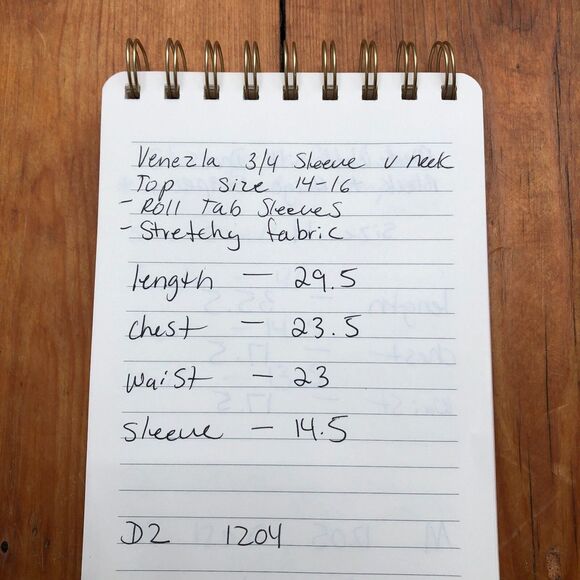 Venezla 3/4 Sleeve v neck
Top Size 14-16
- Roll Tab Sleeves
- Stretchy fabric
length - 29.5
chest - 23.5
waist - 23
Sleeve - 14.5
D2 1204